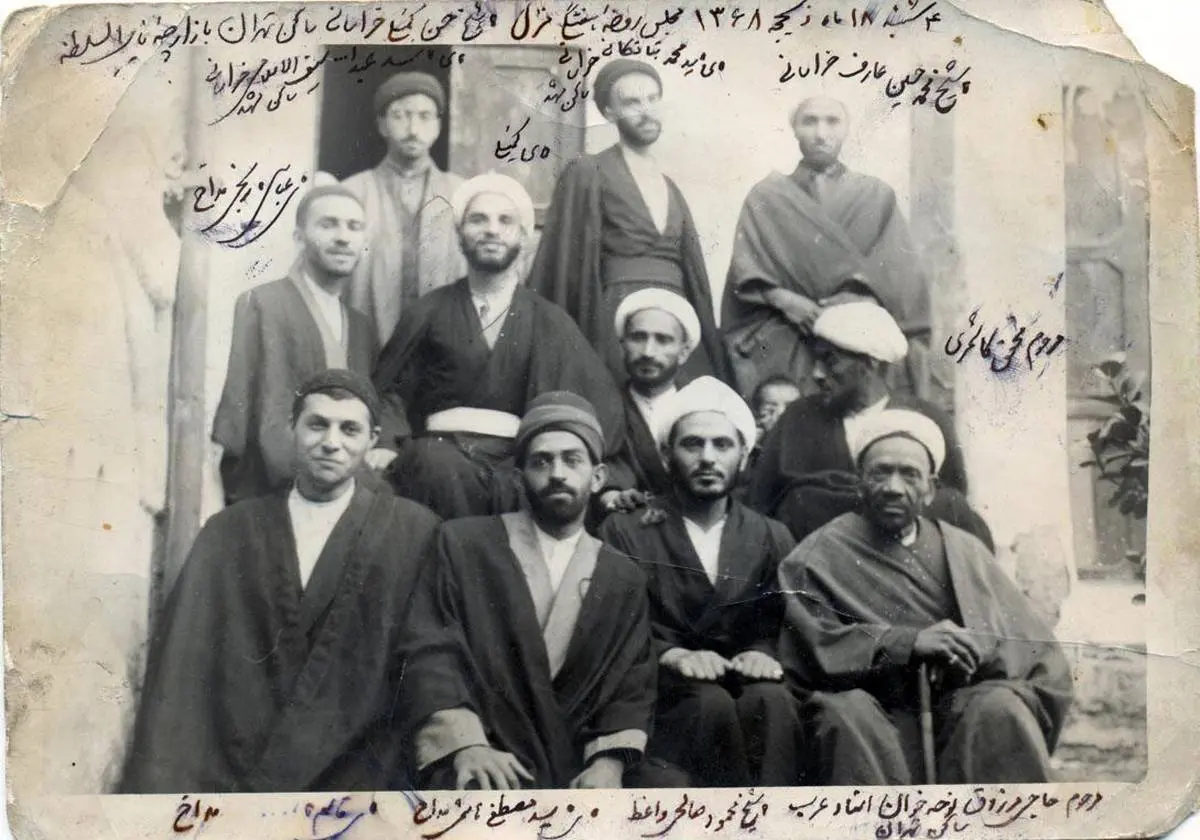 ۴ شنبه ۱۸ ماه ذیحجه ۱۳۶۸ مجلس روضه هفتگی منزل شیخ حسن کیمیا خراسانی ساکن تهران بازارچه نایب السلطنه
شیخ محمد حسین عارف خراسانی
سید محمد خراسانی
ساکن مشهد
سید عبدا... سیف الاسلامی خراسانی
ساکن مشهد
کیمیا
عباس مداح
مرحوم کاشمری
مرحوم حاجی مرزوق روضه خوان استاد عرب
ساکن تهران
شیخ محمود صالحی واعظ
سید مصطفی مداح
قاسم ....
مداح